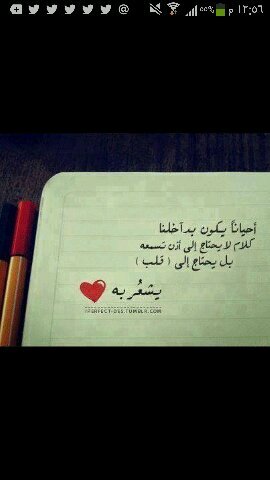 @ ٥٥% م ١٢:٥٦
أحياناً يكون بداخلنا
كلام لا يحتاج إلى أذن تسمعه
بل يحتاج إلى ( قلب )
يشعُر به
IPERFECT-DES.TUMBLR.COM